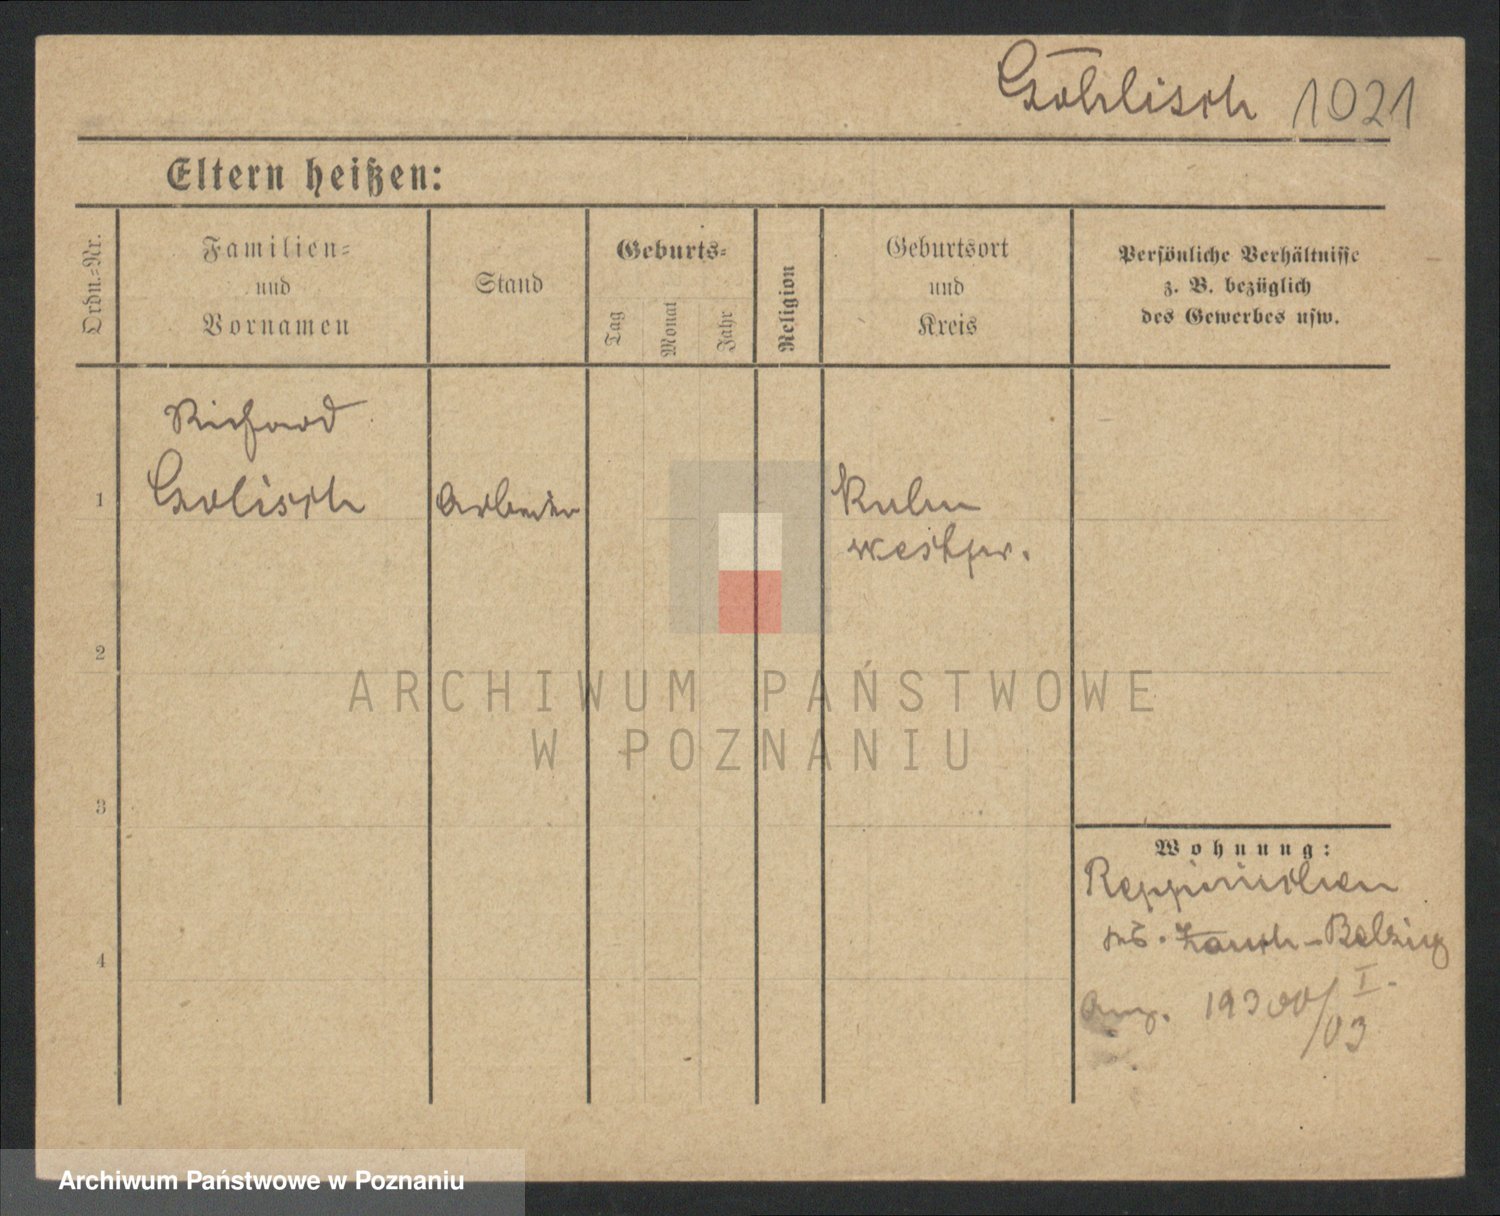 Göhlisch 1021
Eltern heißen:
Ordn.=Nr.
Familien=
und
Vornamen
Stand
Geburts=
Tag
Monat
Jahr
Religion
Geburtsort
und
Kreis
Persönliche Verhältnisse
z. B. bezüglich
des Gewerbes usw.
Richard
1 Golisch Arbeiter Kulm
Westpr.
2
ARCHIWUM PAŃSTWOWE
W POZNANIU
3
Wohnung:
4 Zauch-Belzig
19300/I.
03
Archiwum Państwowe w Poznaniu